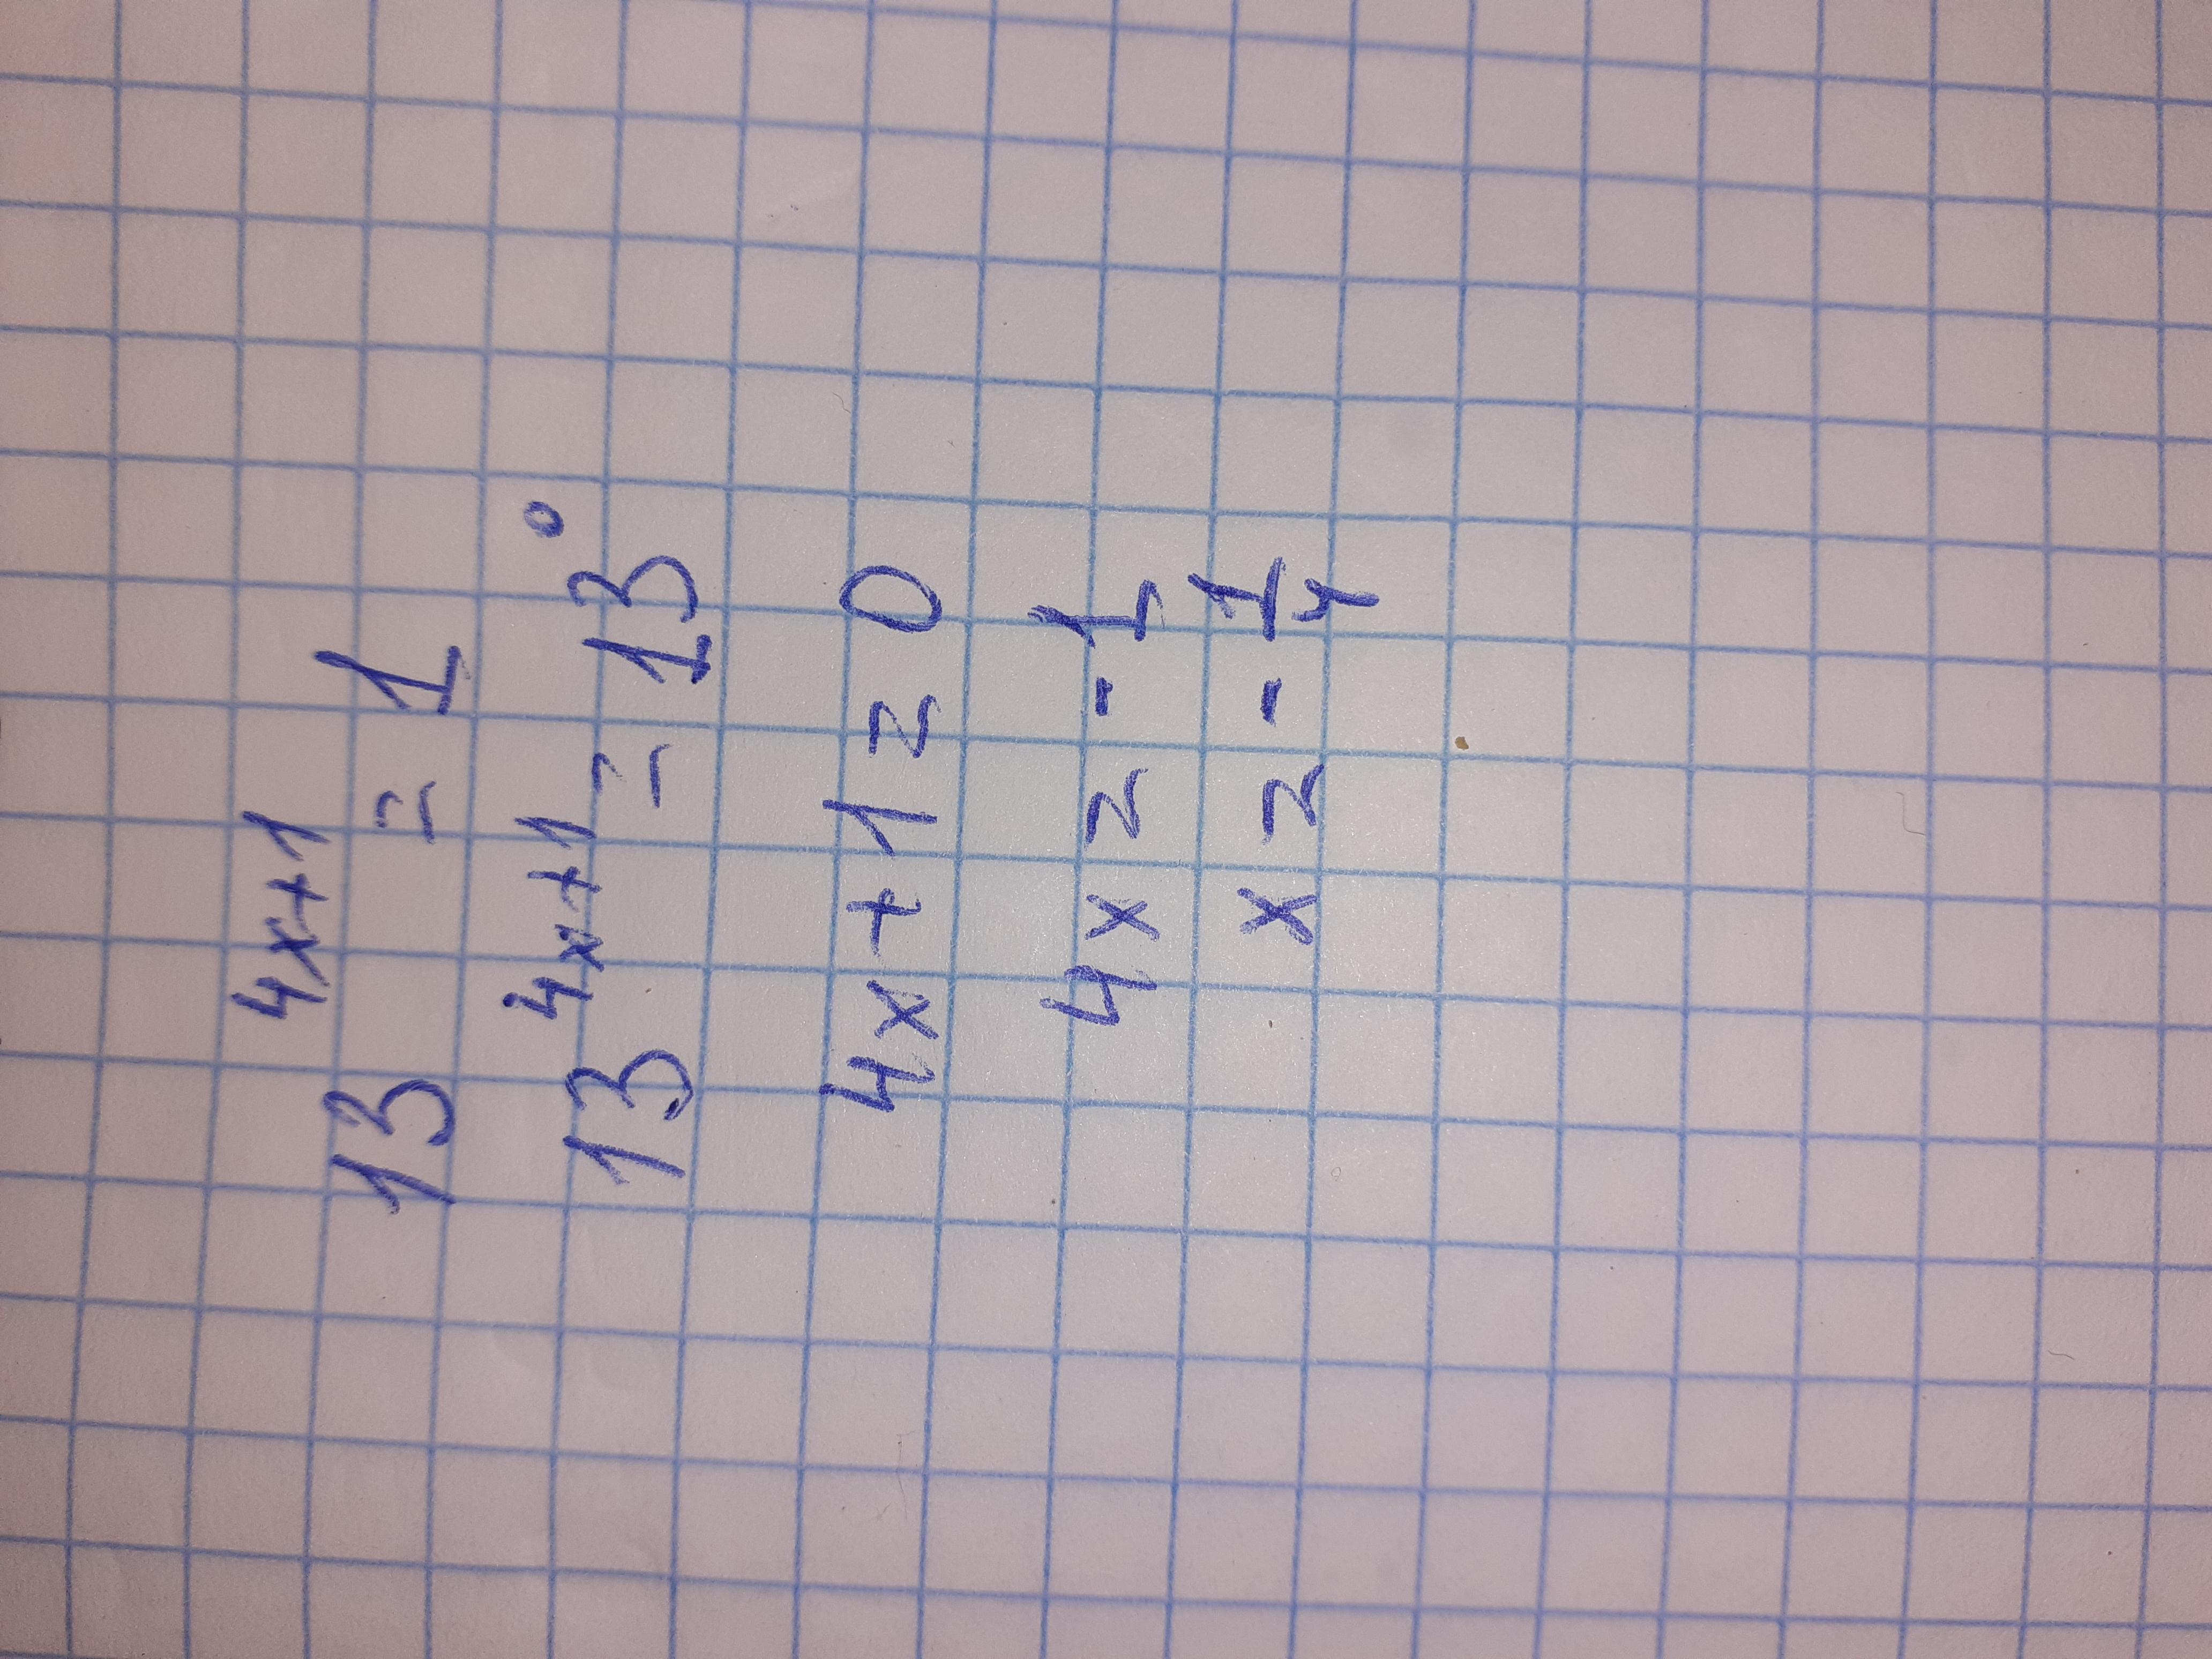 13^{4x+1} = 1
13^{4x+1} = 13^0
4x+1=0
4x=-1
x=-1/4